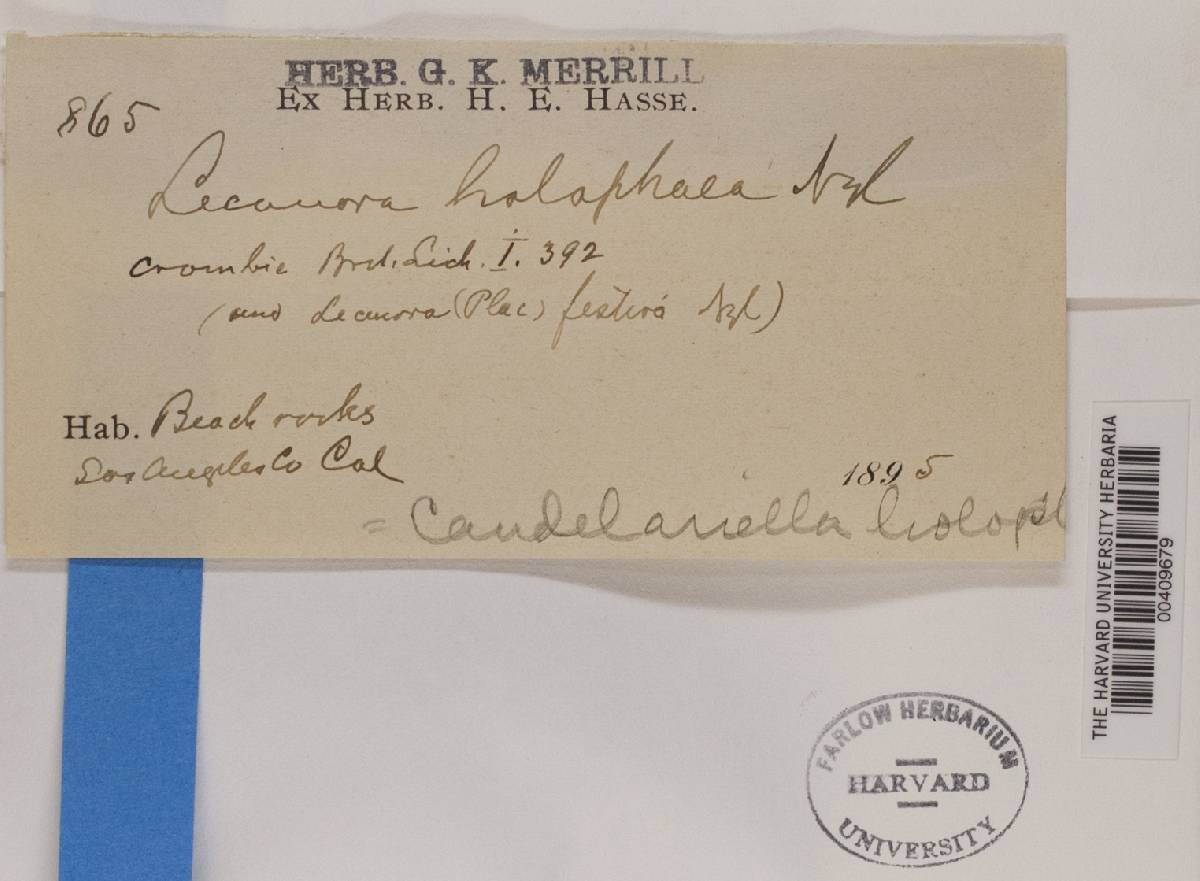 HERB. G. K. MERRILL
EX HERB. H. E. HASSE.
865
Lecanora holophaea Nyl
Crombie Brit. Lich. I. 392
(and Lecanora (Plac) festiva Nyl)
Hab. Beach rocks
Los Angeles Co Cal
1895
= Candelariella holoph
THE HARVARD UNIVERSITY HERBARIA
00409679
FARLOW HERBARIUM
HARVARD
UNIVERSITY